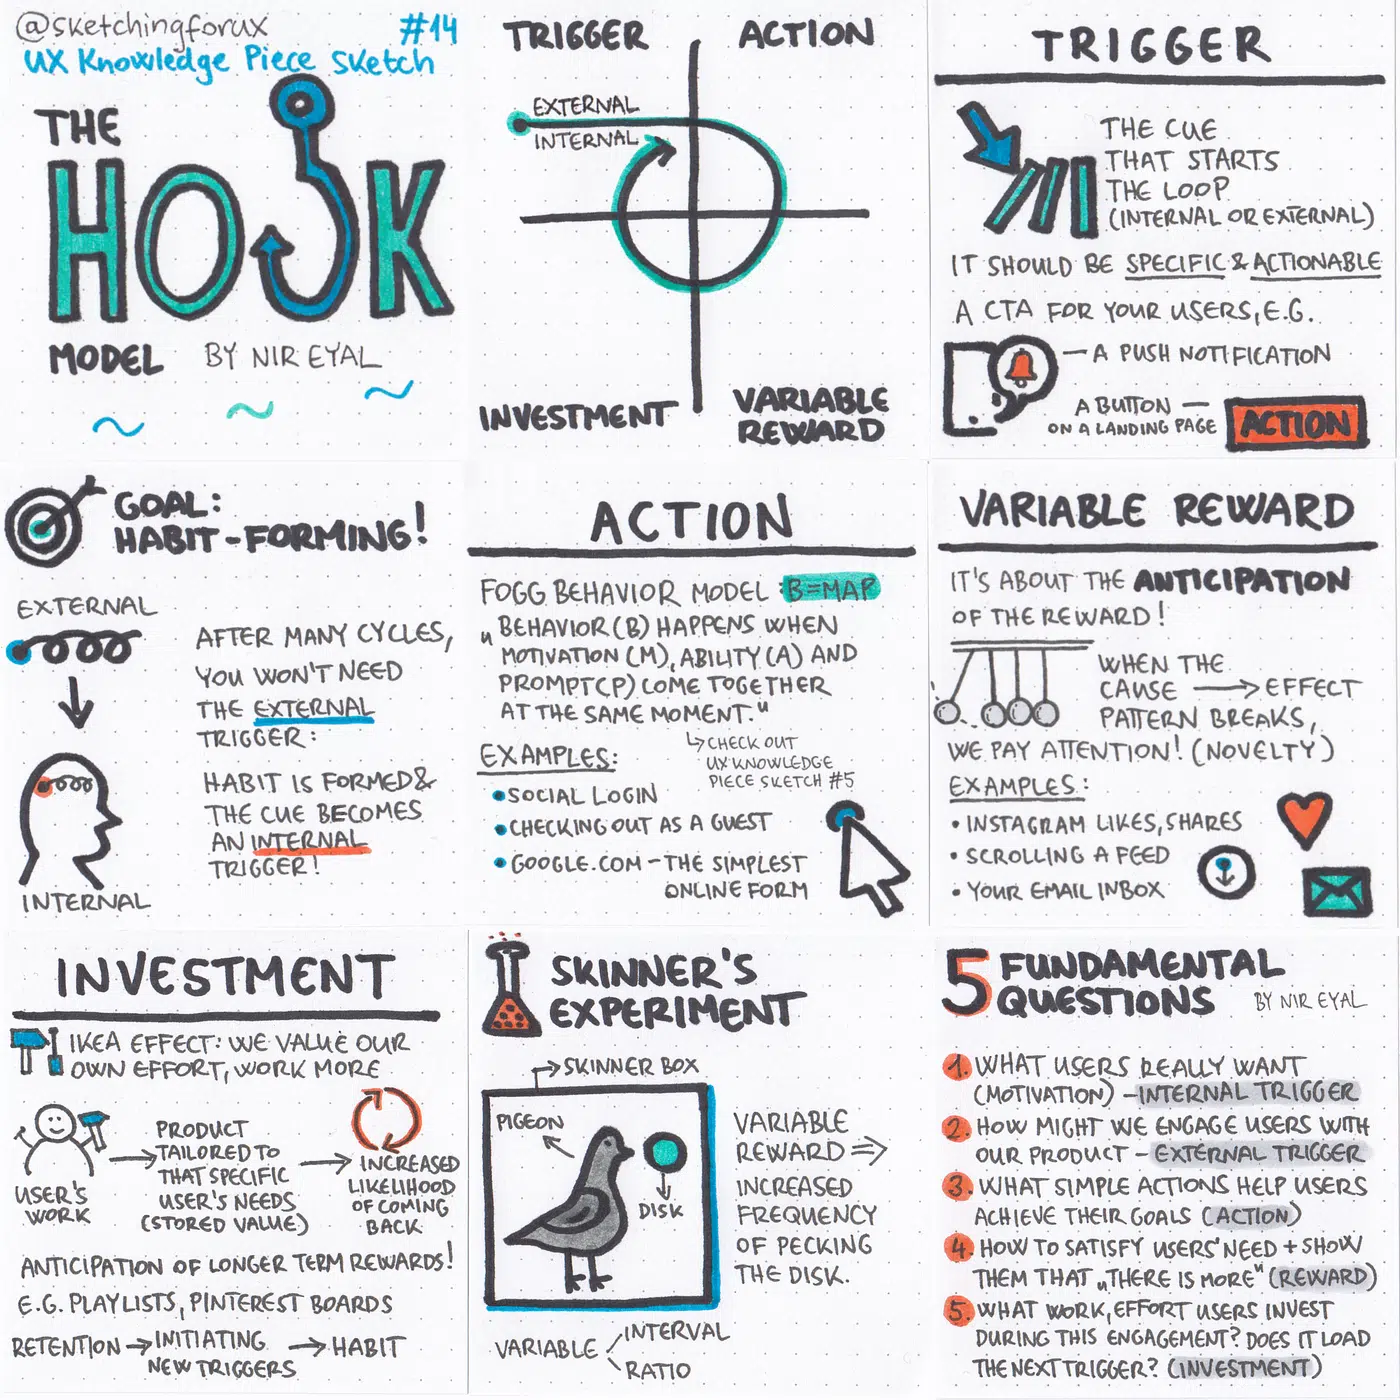 @sketchingforux
#14
UX Knowledge Piece Sketch
THE
HOOK
MODEL BY NIR EYAL
TRIGGER
ACTION
EXTERNAL
INTERNAL
INVESTMENT
VARIABLE
REWARD
TRIGGER
THE CUE
THAT STARTS
THE LOOP
(INTERNAL OR EXTERNAL)
IT SHOULD BE SPECIFIC & ACTIONABLE
A CTA FOR YOUR USERS, E.G.
— A PUSH NOTIFICATION
A BUTTON —
ON A LANDING PAGE
ACTION
GOAL:
HABIT-FORMING!
EXTERNAL
INTERNAL
AFTER MANY CYCLES,
YOU WON'T NEED
THE EXTERNAL
TRIGGER:
HABIT IS FORMED &
THE CUE BECOMES
AN INTERNAL
TRIGGER!
ACTION
FOGG BEHAVIOR MODEL: B=MAP
„BEHAVIOR (B) HAPPENS WHEN
MOTIVATION (M), ABILITY (A) AND
PROMPT (P) COME TOGETHER
AT THE SAME MOMENT."
↳ CHECK OUT
UX KNOWLEDGE
PIECE SKETCH #5
EXAMPLES:
• SOCIAL LOGIN
• CHECKING OUT AS A GUEST
• GOOGLE.COM – THE SIMPLEST
ONLINE FORM
VARIABLE REWARD
IT'S ABOUT THE ANTICIPATION
OF THE REWARD!
WHEN THE
CAUSE → EFFECT
PATTERN BREAKS,
WE PAY ATTENTION! (NOVELTY)
EXAMPLES:
• INSTAGRAM LIKES, SHARES
• SCROLLING A FEED
• YOUR EMAIL INBOX
INVESTMENT
IKEA EFFECT: WE VALUE OUR
OWN EFFORT, WORK MORE
USER'S
WORK
PRODUCT
TAILORED TO
THAT SPECIFIC
USER'S NEEDS
(STORED VALUE)
INCREASED
LIKELIHOOD
OF COMING
BACK
ANTICIPATION OF LONGER TERM REWARDS!
E.G. PLAYLISTS, PINTEREST BOARDS
RETENTION → INITIATING → HABIT
NEW TRIGGERS
SKINNER'S
EXPERIMENT
SKINNER BOX
PIGEON
DISK
VARIABLE
REWARD ⇒
INCREASED
FREQUENCY
OF PECKING
THE DISK.
VARIABLE
INTERVAL
RATIO
5 FUNDAMENTAL
QUESTIONS BY NIR EYAL
1. WHAT USERS REALLY WANT
(MOTIVATION) – INTERNAL TRIGGER
2. HOW MIGHT WE ENGAGE USERS WITH
OUR PRODUCT – EXTERNAL TRIGGER
3. WHAT SIMPLE ACTIONS HELP USERS
ACHIEVE THEIR GOALS (ACTION)
4. HOW TO SATISFY USERS' NEED + SHOW
THEM THAT „THERE IS MORE" (REWARD)
5. WHAT WORK, EFFORT USERS INVEST
DURING THIS ENGAGEMENT? DOES IT LOAD
THE NEXT TRIGGER? (INVESTMENT)